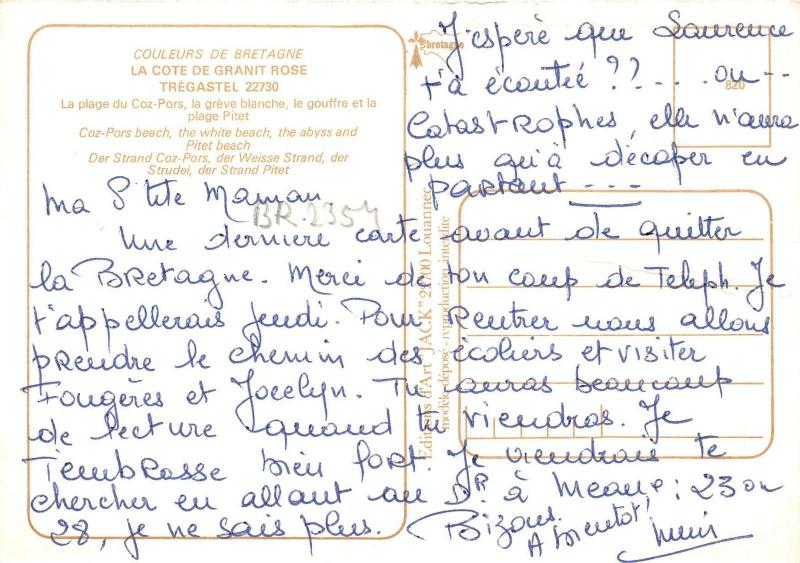 COULEURS DE BRETAGNE
LA COTE DE GRANIT ROSE
TRÉGASTEL 22730
La plage du Coz-Pors, la grève blanche, le gouffre et la
plage Pitet
Coz-Pors beach, the white beach, the abyss and
Pitet beach
Der Strand Coz-Pors, der Weisse Strand, der
Strudel, der Strand Pitet
bretagne
820
BR.2354
Editions d'Art "JACK" 22700 Louannec
modèle déposé - reproduction interdite
Ma P'tite Maman.
Une dernière carte avant de quitter
la Bretagne. Merci de ton coup de Teleph. Je
t'appellerais jeudi. Pour rentrer nous allons
prendre le chemin des écoliers et visiter
Fougères et Jocelyn. Tu auras beaucoup
de lecture quand tu viendras. Je
T'embrasse bien fort Je viendrais te
chercher en allant au DR. à Meaux : 23 ou
28, je ne sais plus. Bizous.
A bientôt!
J'espère que Laurence
t'a écoutée ??.... ou --
Catastrophes, elle n'aura
plus qu'à décaper en
partant ---